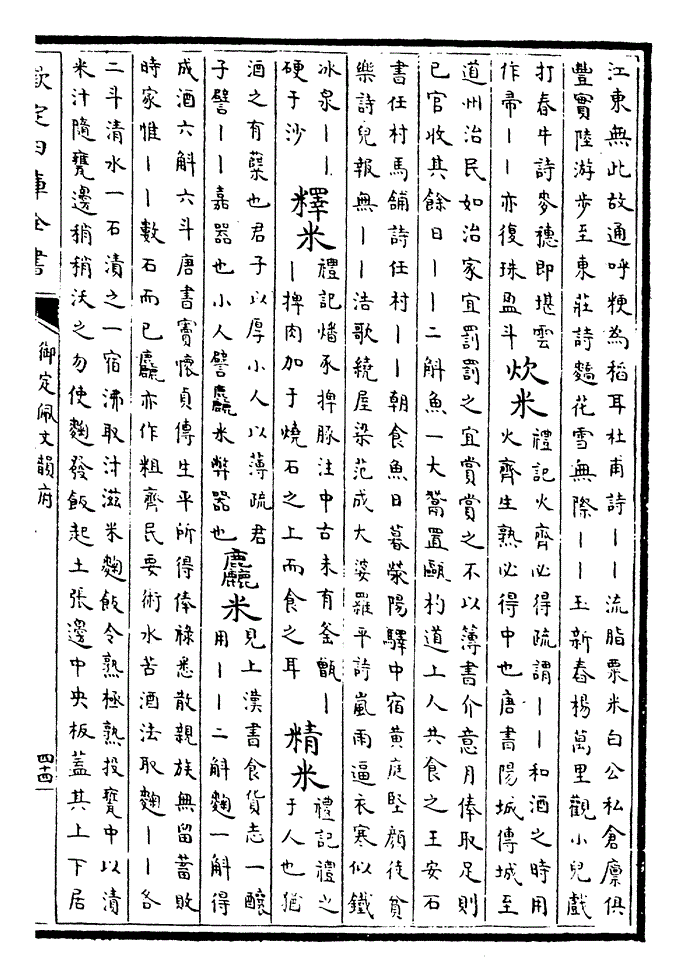 江東無此故通呼粳為稻耳杜甫詩丨丨流脂粟米白公私倉廩俱
豐實陸游步至東莊詩麵花雪無際丨丨玉新舂楊萬里觀小兒戲
打春牛詩麥穗即堪雲
作帚丨丨亦復珠盈斗
炊米
禮記火齊必得疏謂丨丨和酒之時用
火齊生熟必得中也唐書陽城傳城至
道州治民如治家宜罰罰之宜賞賞之不以簿書介意月俸取足則
已官收其餘日丨丨二斛魚一大鬵置甌杓道上人共食之王安石
書任村馬舖詩任村丨丨朝食魚日暮滎陽驛中宿黄庭堅顔徒貧
樂詩兒報無丨丨浩歌繞屋梁范成大婆羅平詩嵐雨逼衣寒似鐵
冰泉丨丨
硬于沙
釋米
禮記燔豕捭豚注中古未有釜甑丨
丨捭肉加于燒石之上而食之耳
精米
禮記禮之
于人也猶
酒之有蘖也君子以厚小人以薄疏君
子譬丨丨嘉器也小人譬麤米弊器也
麤米
見上漢書食貨志一釀
用丨丨二斛麴一斛得
成酒六斛六斗唐書竇懷貞傳生平所得俸祿悉散親族無留蓄敗
時家惟丨丨數石而已麤亦作粗齊民要術水苦酒法取麴丨丨各
二斗清水一石漬之一宿沸取汁滋米麴飯令熟極熟投甕中以漬
米汁隨甕邊稍稍沃之勿使麴發飯起土張邊中央板蓋其上下居
欽定四庫全書
御定佩文韻府
四十四